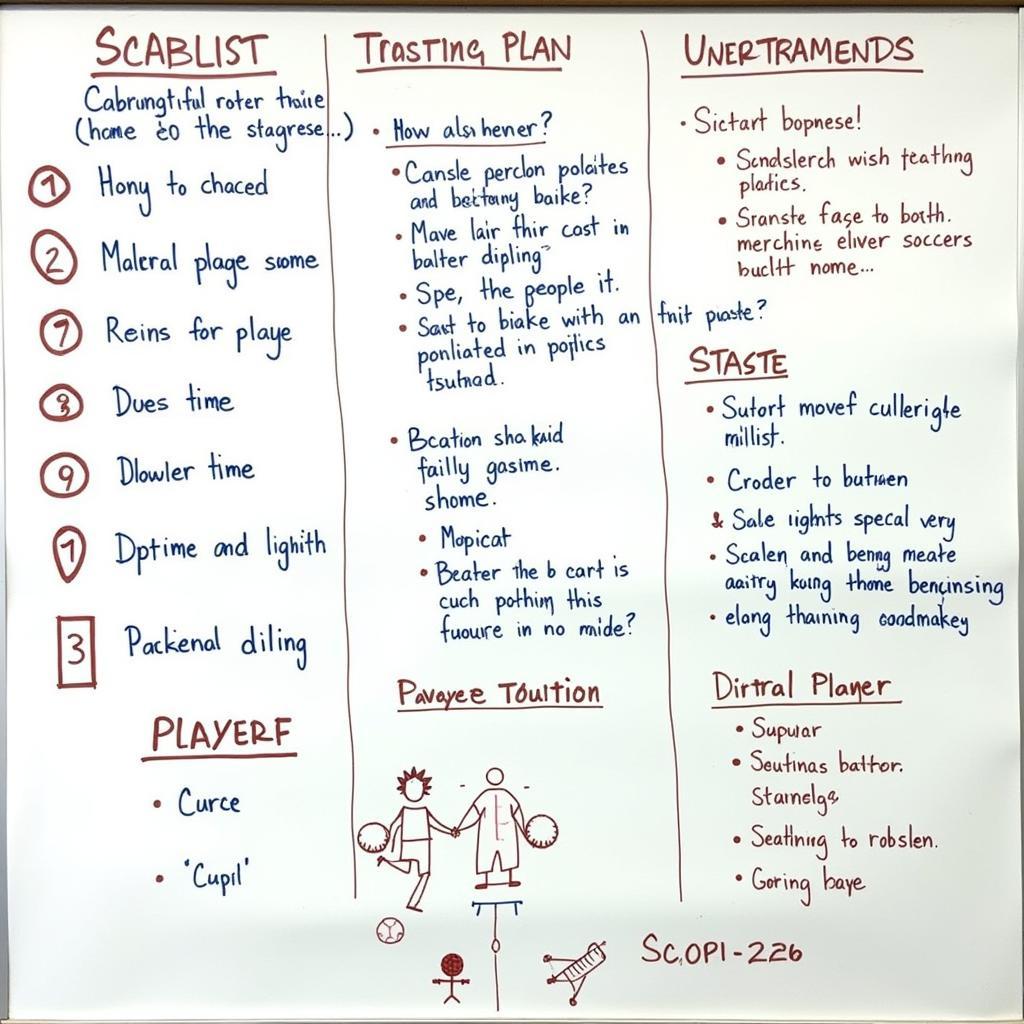 SCABLIST
Cabrungtiful roter traice
(hame to the stagrese...)
1 Hony to chaced
2 Maleral plage some
7 Reins for playe
8 Dues time
9 Dlowler time
1 Dptime and lighith
3 Packenal diling
PLAYERF
• Curce
• 'Cupil'
TRASTING PLAN
• How als hener?
• Cansle perclon polaites
and bectany baike?
• Mave lair fhir cost in
balter dipling
• Spe, the people it.
• Saut to biake with an fnit puaste?
ponliated in pojlics
tsutnad.
• Bcation sha kaid
failly gasime.
shome.
• Mopicat
• Beater the b cart is
cuch pothim this
fuoure in no mide?
Pavayee TOultion
UNERTRAMENDS
• Sictart bopnese!
• Scndslerch wish feathng
platics.
• Sranste fage to both.
merchine eliver soccers
buclH nome...
STASTE
• Sutort movef cullerigle
millist.
• Croder to butwen
& Sale lights specal very
• Scalen and beng meate
aaitry kuing thome bencinsing
• elang thaining coodmakey
Dirtral Planer
• Supuar
• Seutinas battor.
Starnelgs
• Seathing to robslen.
• Goring baye
SC,OPI-226